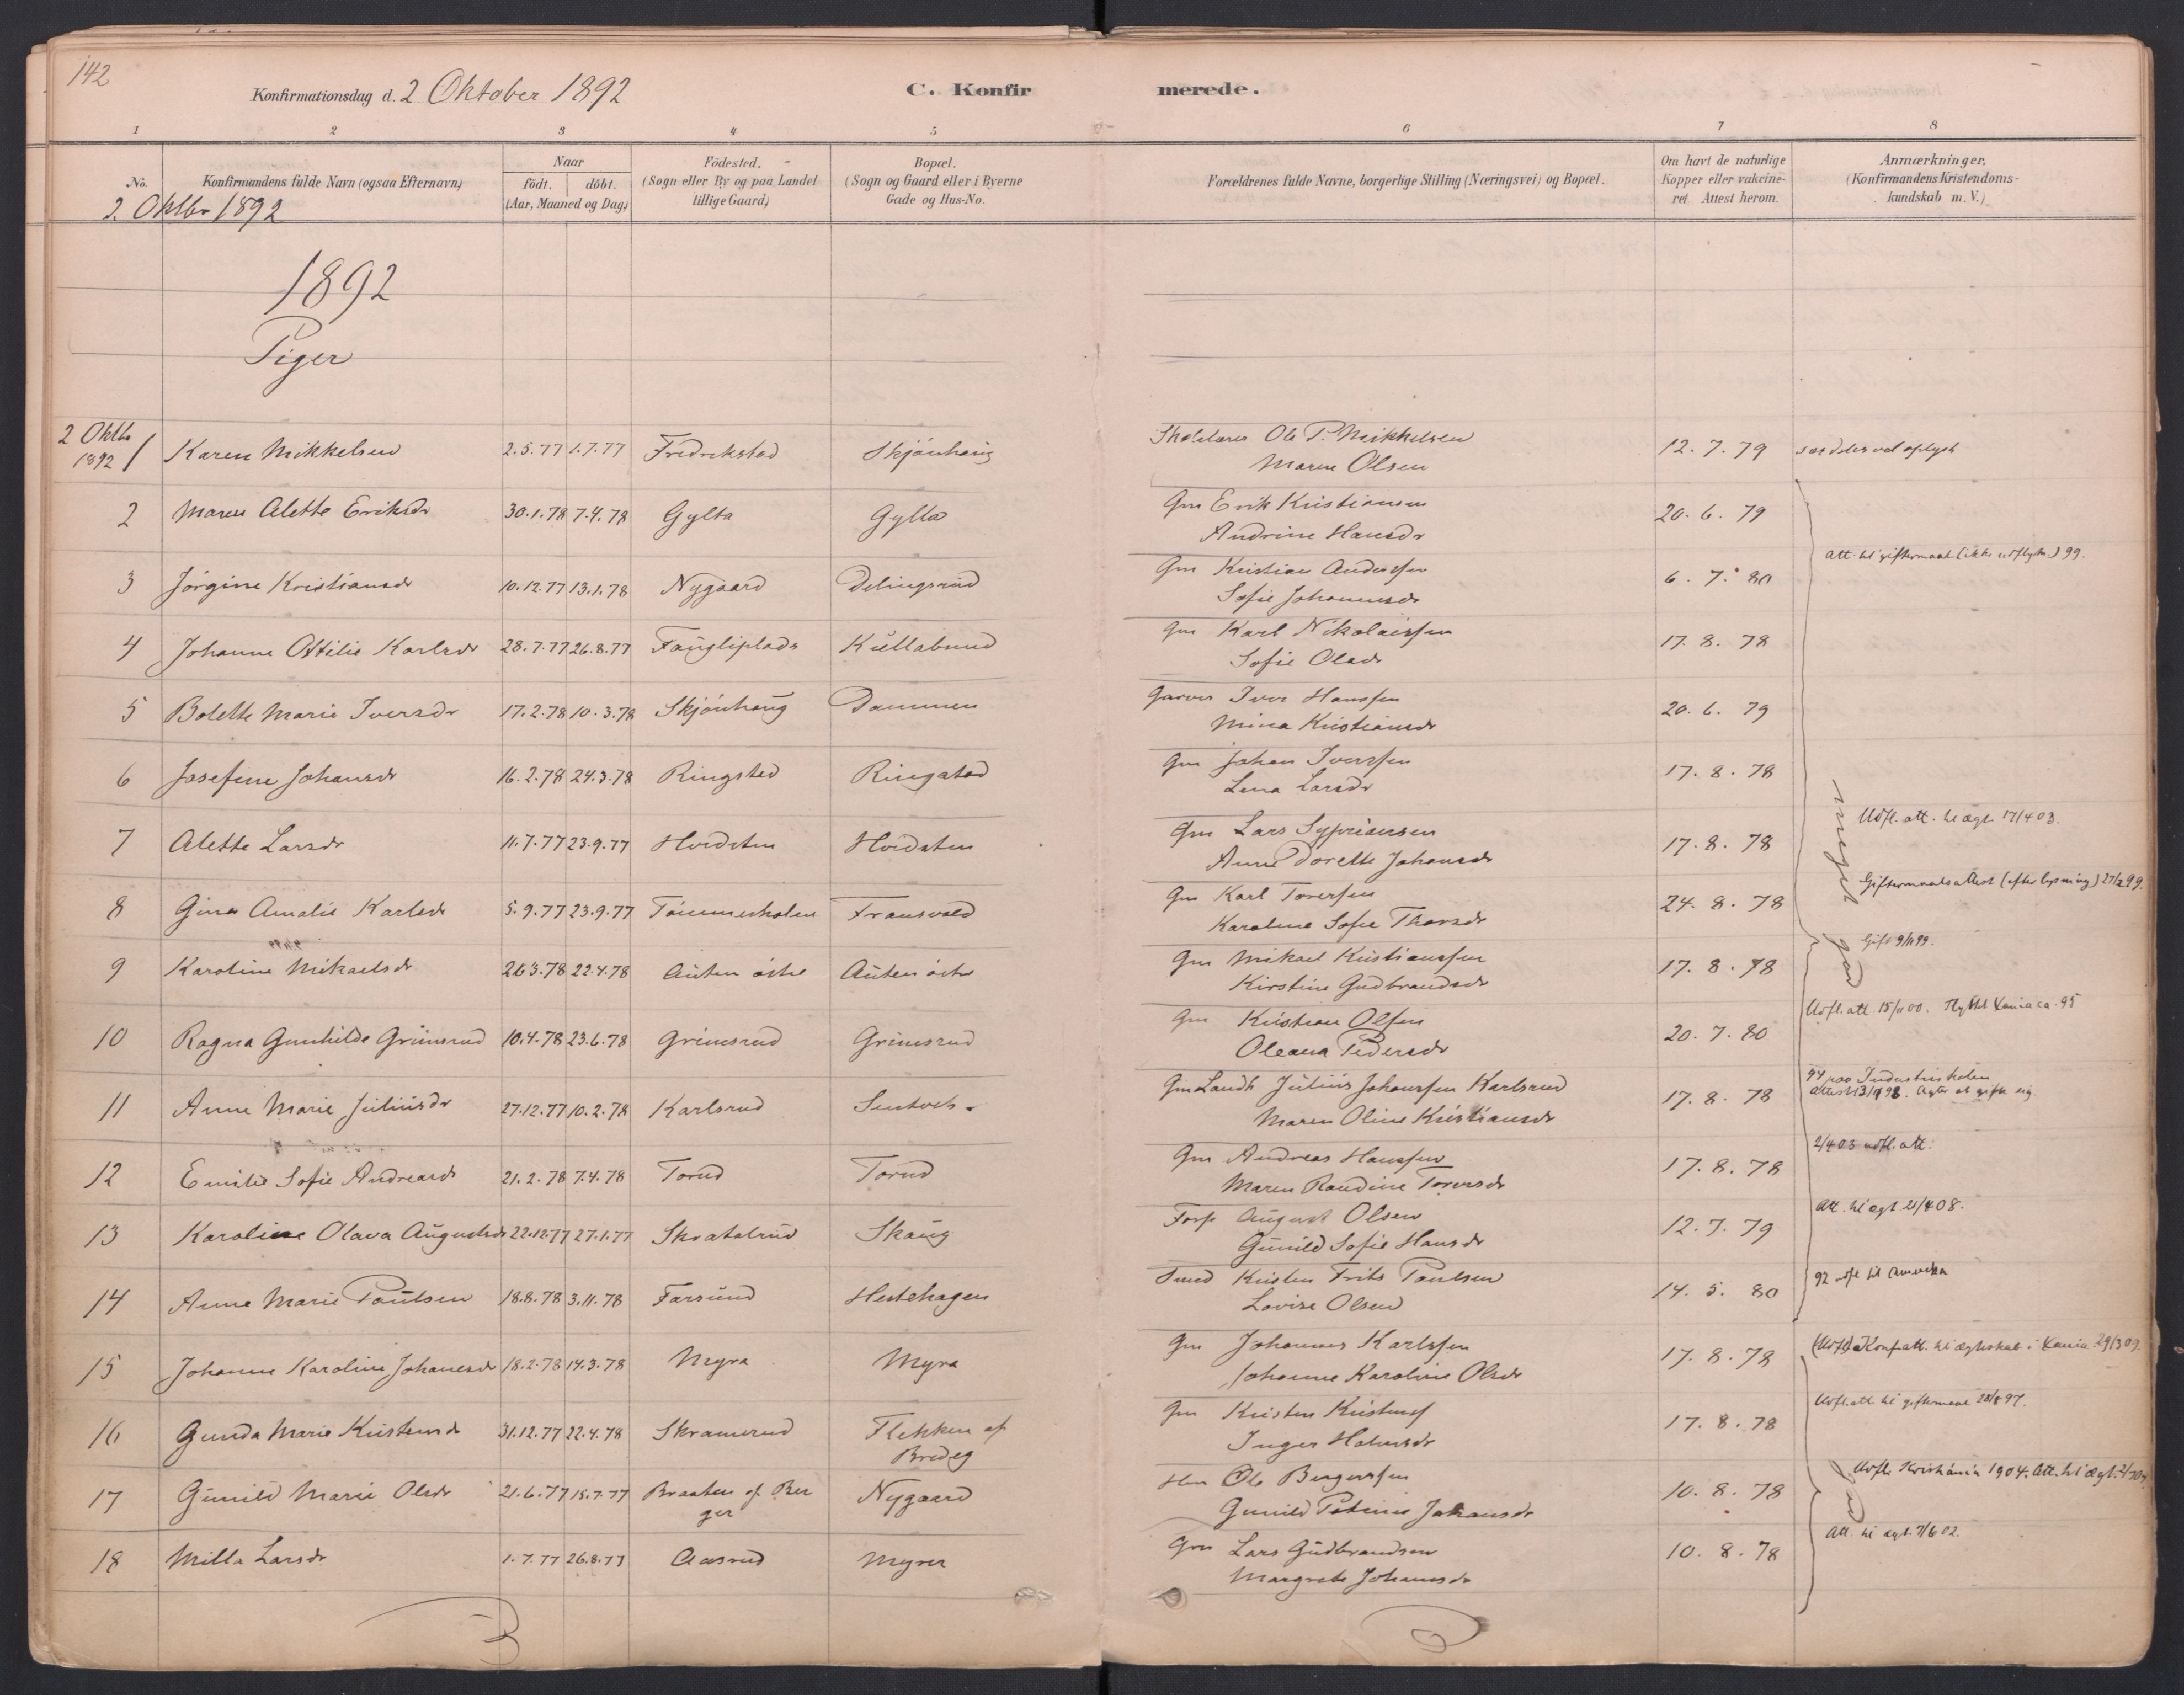 142
Konfirmationsdag d. 2 Oktober 1892
C. Konfirmerede.
1 2 3 4 5 6 7 8
No.
Konfirmandens fulde Navn (ogsaa Efternavn)
Naar
födt. döbt.
(Aar, Maaned og Dag)
Födested.
(Sogn eller By og paa Landet
tillige Gaard)
Bopæl.
(Sogn og Gaard eller i Byerne
Gade og Hus-No.
Forældrenes fulde Navne, borgerlige Stilling (Næringsvei) og Bopæl.
Om havt de naturlige
Kopper eller vakcine-
ret. Attest herom.
Anmærkninger.
(Konfirmandens Kristendoms-
kundskab m. V.)
2. Oktbr 1892
1892
Piger
2 Oktbr
1892
1 Karen Mikkelsen 2.5.77 1.7.77 Fredrikstad Skjönhaug Ole P. Mikkelsen 12.7.79 særdeles vel oplyst
Maren Olsen
2 Maren Alette Eriksdr 30.1.78 7.4.78 Gylta Gylta Gm Erik Kristiansen 20.6.79
Andrine Hansdr
Att. til giftermaal (ikke udflytn.) 99.
3 Jörgine Kristiansdr 10.12.77 13.1.78 Nygaard Delingsrud Gm Kristian Anderssen 6.7.80
Sofie Johannesdr
4 Johanne Ottilie Karlsdr 28.7.77 26.8.77 Faugliplads Kullabund Gm Karl Nikolaissen 17.8.78
Sofie Olsdr
5 Bolette Marie Iversdr 17.2.78 10.3.78 Skjönhaug Dammen Garver Iver Hanssen 20.6.79
Mina Kristiansdr
6 Josefine Johansdr 16.2.78 24.3.78 Ringstad Ringstad Gm Johan Iverssen 17.8.78
Lena Larsdr
meget god
7 Alette Larsdr 11.7.77 23.9.77 Hvidsten Hvidsten Gm Lars Sypriansen 17.8.78 Udfl. att. til ægt. 17/4 03.
Anne Dorette Johansdr
8 Gina Amalie Karlsdr 5.9.77 23.9.77 Tömmerholen Fransvold Gm Karl Torersen 24.8.78 Giftermaalsattest (efter lysning) 27/2 99.
Karoline Sofie Thorsdr
9 Karoline Mikaelsdr 26.3.78 22.4.78 Auten östre Auten östre Gm Mikael Kristianssen 17.8.78 Gift 9/11 99.
Kirstine Gudbrandsdr
10 Ragna Gunhilde Grimsrud 10.4.78 23.6.78 Grimsrud Grimsrud Gm Kristian Olsen 20.7.80 Udfl. att. 15/11 00. Flyttet Xania ca. 95
Oleana Pedersdr
11 Anne Marie Juliusdr 27.12.77 10.2.78 Karlsrud Gm Landh Julius Johanssen Karlsrud 17.8.78 94 paa Industriskolen
Maren Oline Kristiansdr
12 Emilie Sofie Andreasdr 21.2.78 7.4.78 Torud Torud Gm Andreas Hanssen 17.8.78 2/4 03 udfl. att.
Maren Randine Torersdr
13 Karoline Olava Augustsdr 22.12.77 27.1.77 Skratalrud Skaug Forp August Olsen 12.7.79 Att. til ægt 21/4 08.
Gunild Sofie Hansdr
14 Anne Marie Paulsen 18.8.78 3.11.78 Farsund Hestehagen Smed Kristen Frits Paulsen 14.5.80 92 udfl til Amerika
Lovise Olsen
15 Johanne Karoline Johanesdr 18.2.78 14.3.78 Myra Myra Gm Johannes Karlssen 17.8.78 Konf. att. til ægteskab i Xania
Johanne Karoline Olsdr
16 Gunda Marie Kristensdr 31.12.77 22.4.78 Skramerud Flekken af Gm Kristen Kristens 17.8.78 Udfl. att. til giftermaal 28/8 97.
Bredeg
Inger Holmsdr
god
17 Gunild Marie Olsdr 21.6.77 15.7.77 Braaten af Ber Nygaard Ole Bergerssen 10.8.78 Udfl. Kristiania 1904. Att. til ægt.
ger
Gunild Petrine Johansdr
18 Milla Larsdr 1.7.77 26.8.77 Aasrud Myrer Gm Lars Gudbrandsen 10.8.78 Att. til ægt. 7/6 02.
Margrete Johansdr